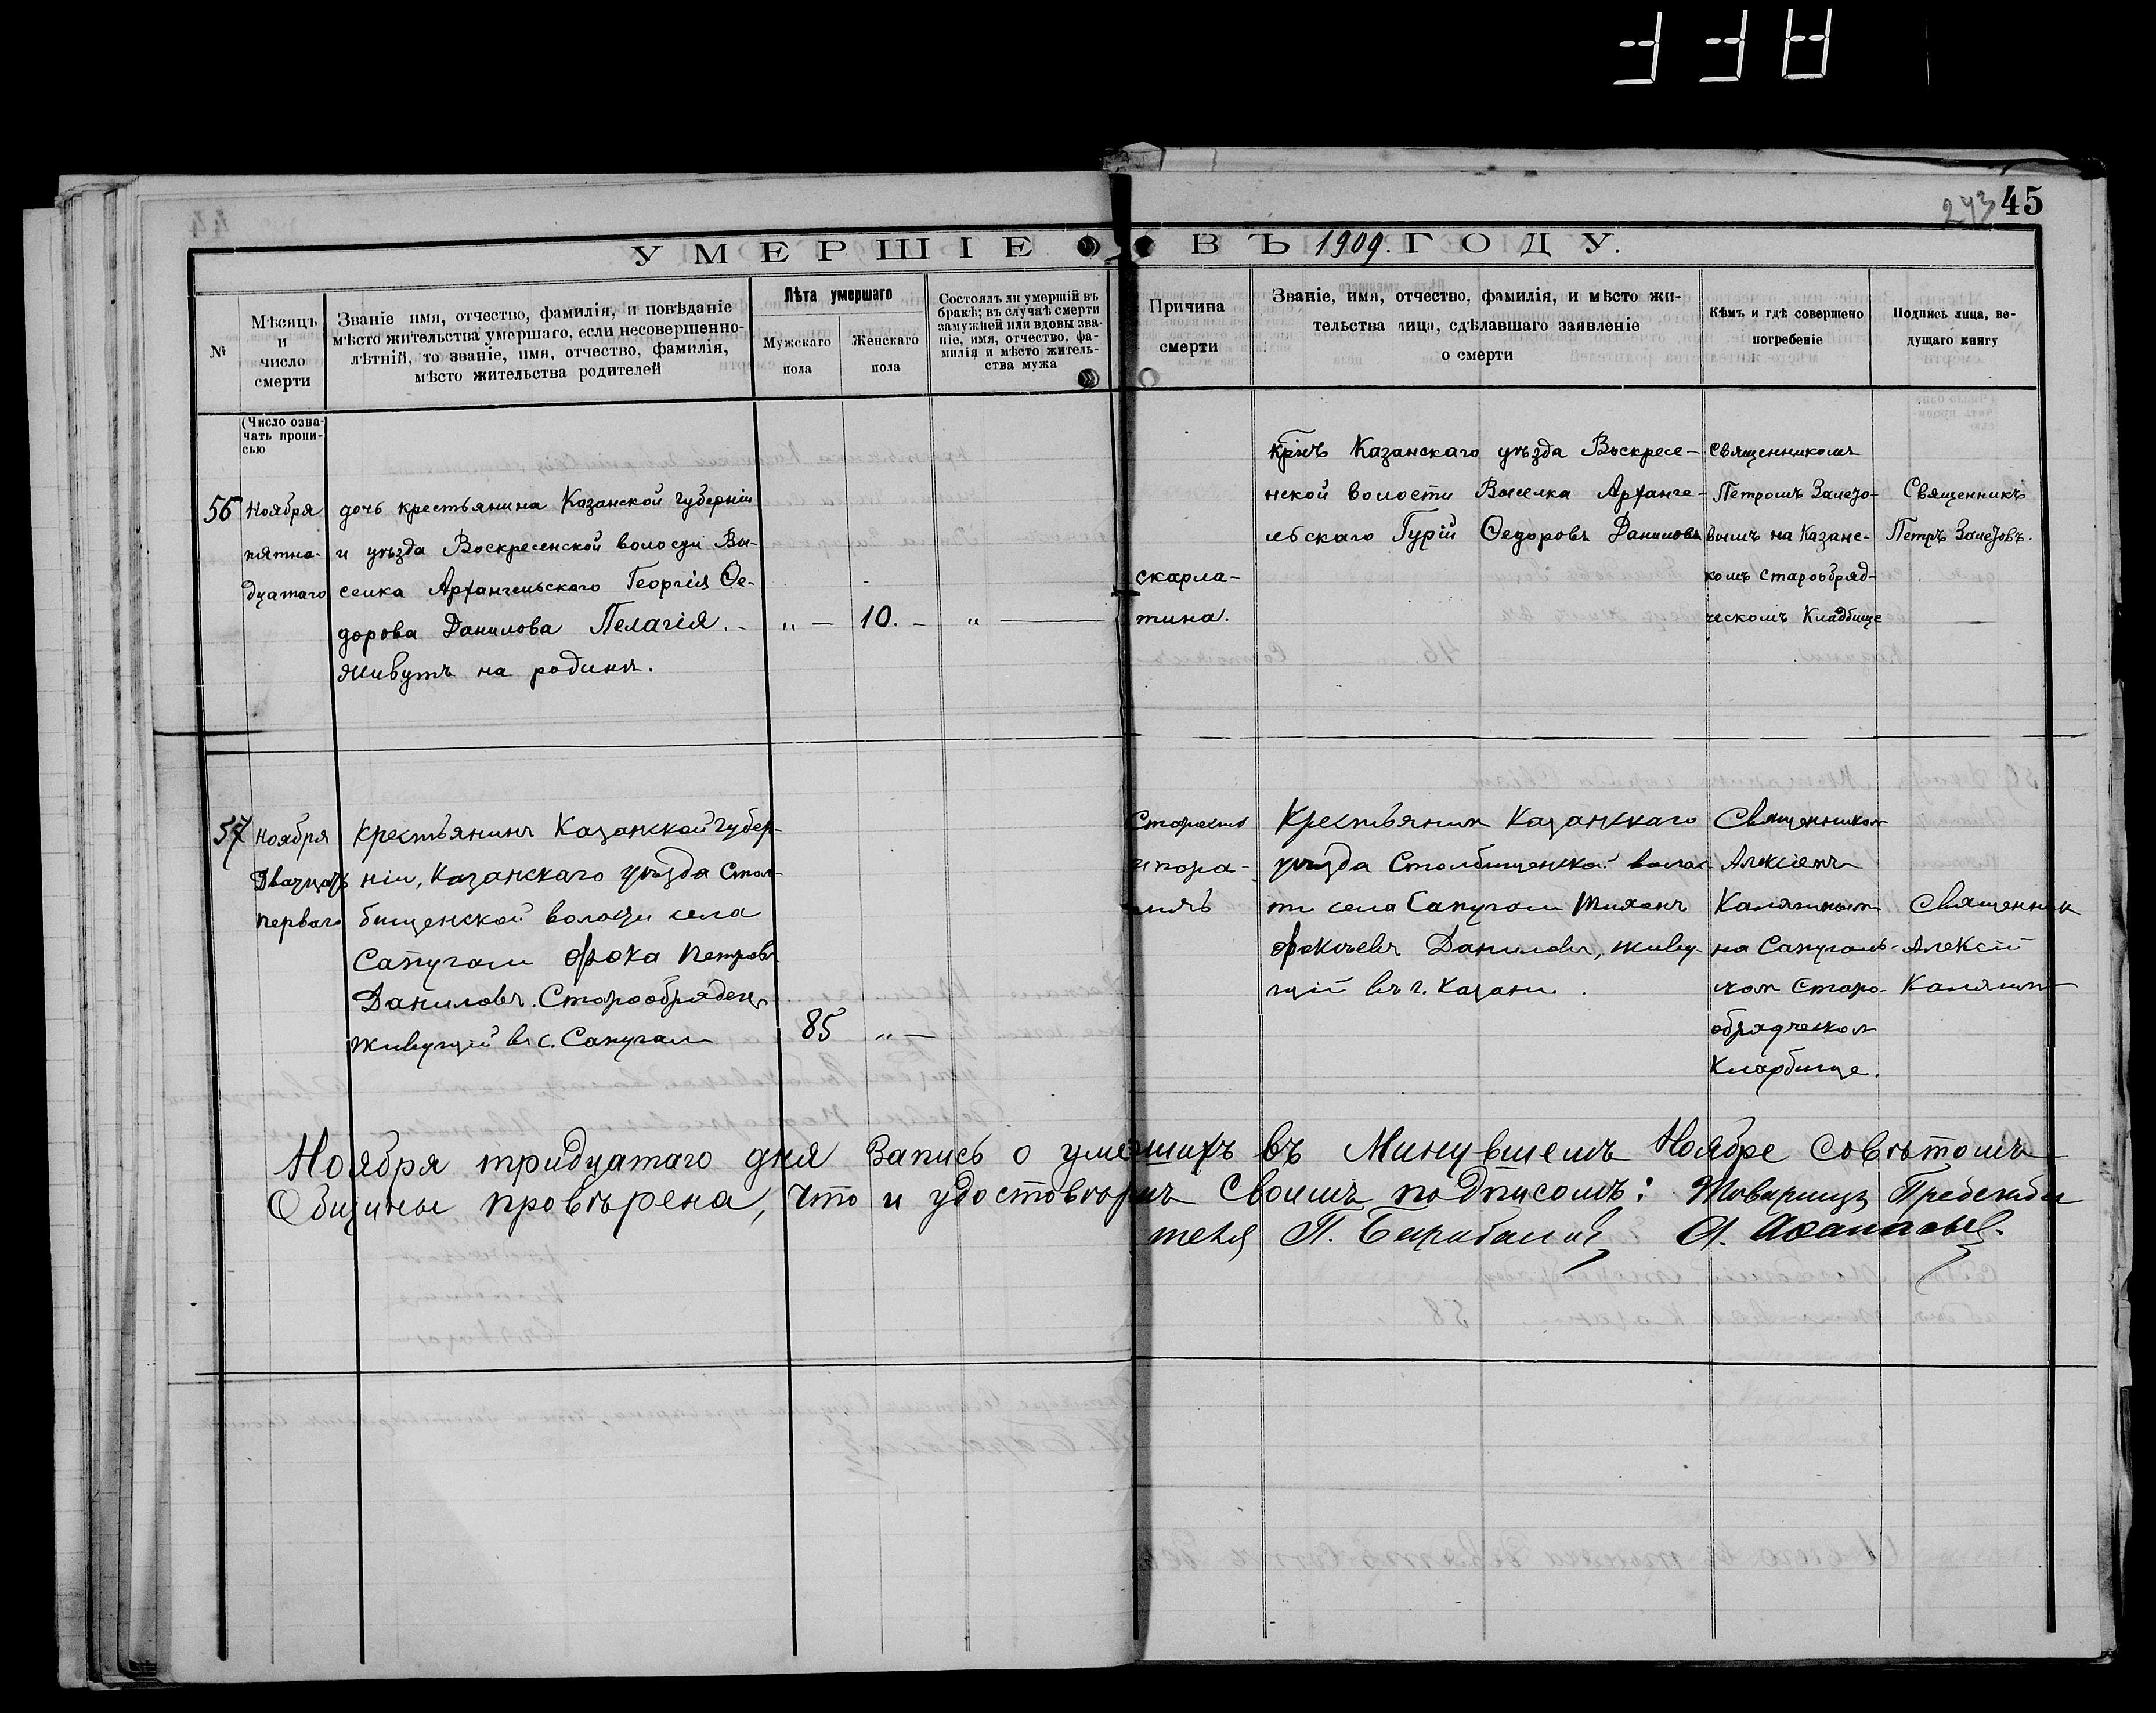 338
243 45
УМЕРШІЕ ВЪ 1909. ГОДУ.
№
Мѣсяцъ
и
число
смерти
Званіе имя, отчество, фамилія, и повѣданіе
мѣсто жительства умершаго, если несовершенно-
лѣтній, то званіе, имя, отчество, фамилія,
мѣсто жительства родителей
Лѣта умершаго
Мужскаго
пола
Женскаго
пола
Состоялъ ли умершій въ
бракѣ; въ случаѣ смерти
замужней или вдовы зва-
ніе, имя, отчество, фа-
милія и мѣсто житель-
ства мужа
Причина
смерти
Званіе, имя, отчество, фамилія, и мѣсто жи-
тельства лица, сдѣлавшаго заявленіе
о смерти
Кѣмъ и гдѣ совершено
погребеніе
Подпись лица, ве-
дущаго книгу
(Число озна-
чать пропи-
сью
56
Ноября
пятна-
дцатаго
дочь крестьянина Казанской губерніи
и уѣзда Воскресенской волости Вы-
селка Архангельского Георгія Ѳе-
дорова Данилова Пелагія. -
Живутъ на родинѣ.
„ —
10. -
„ —
скарла-
тина.
крнъ Казанскаго уѣзда Воскресе-
нской волости Выселка Арханге-
льскаго Гурій Ѳедоровъ Даниловъ
Священникомъ
Петромъ Залетo-
вымъ на Казанс-
комъ старообряд-
ческомъ Кладбище
Священникъ
Петръ Залетовъ.
57
Ноября
Двадцать
перваго
Крестьянинъ Казанской губер-
ніи, Казанскаго уѣзда Стол-
бищенской волости села
Сапугали Фока Петровъ
Даниловъ. Старообрядецъ
живущій въ с. Сапугали
85
„ —
Старость
Крестьянинъ Казанскаго
уѣзда Столбищенской волос-
ти села Сапугали Тихонъ
Фокичевъ Даниловъ, живу-
щій въ г. Казани.
Священникомъ
Алексіемъ
Калягинымъ
на Сапуголь-
ком Старо-
обрядческом
Кладбище.
Священник
Алексій
Калягинъ
Ноября тридцатаго дня Запись о умершихъ въ Минувшемъ Ноябре Совѣтомъ
Общины провѣрена, что и удостовѣримъ Своимъ подписомъ: Товарищъ Предсѣда
теля П. Барабанов А. Афанасьев.